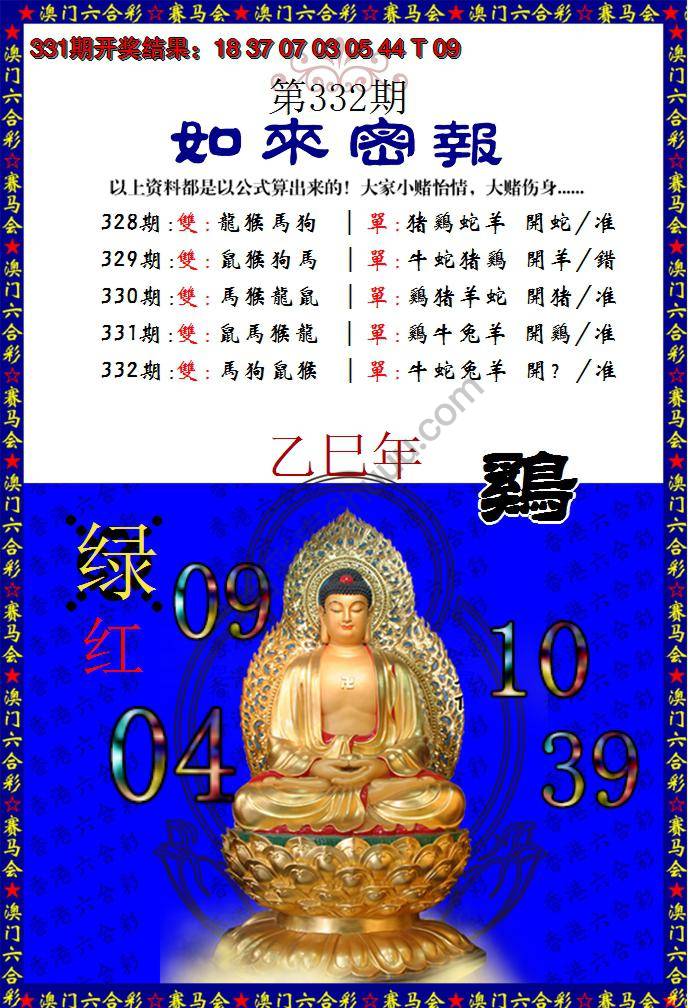 ★澳门六合彩☆赛马会★澳门六合彩☆赛马会★澳门六合彩☆赛马会★
331期开奖结果：18 37 07 03 05 44 T 09
第332期
如來密報
以上资料都是以公式算出来的！大家小赌怡情，大赌伤身......
328期:雙:龍猴馬狗 | 單:猪鷄蛇羊 開蛇/准
329期:雙:鼠猴狗馬 | 單:牛蛇猪鷄 開羊/錯
330期:雙:馬猴龍鼠 | 單:鷄猪羊蛇 開猪/准
331期:雙:鼠馬猴龍 | 單:鷄牛兔羊 開鷄/准
332期:雙:馬狗鼠猴 | 單:牛蛇兔羊 開?/准
乙巳年
鷄
绿
红
09
10
04
39
香港六合彩
★澳门六合彩☆赛马会★澳门六合彩☆赛马会★澳门六合彩☆赛马会★